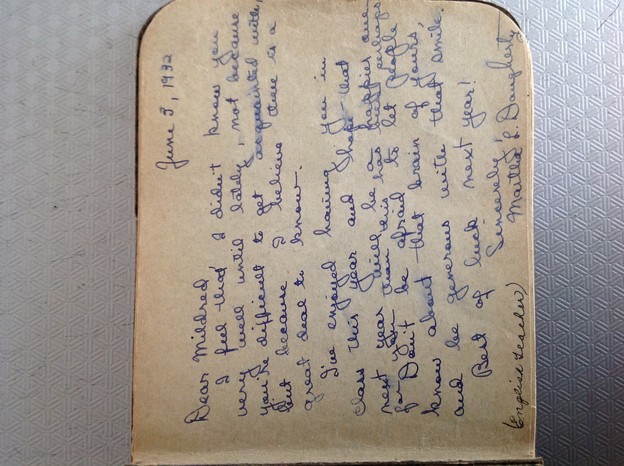 June 3, 1932
Dear Mildred,
I feel that I didn't know you
very well until lately, not because
you're difficult to get acquainted with,
but because I believe there is a
great deal to know.
I've enjoyed having you in
class this year and hope that
next year will be a happier one
for you than this has been perhaps
Don't be afraid to let people
know about that brain of yours,
and be generous with that smile.
Best of luck next year!
Sincerely,
Martha L. Daugherty
(English teacher)